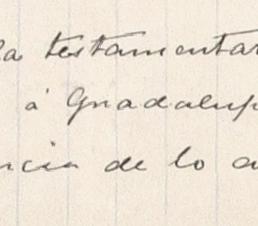 la testamentar
á Guadalup
ncia de lo a